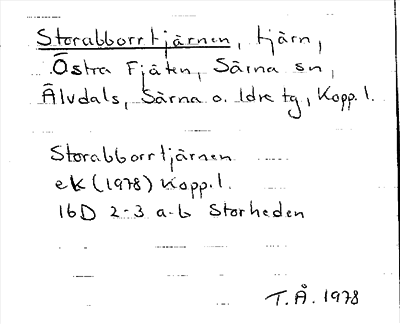 Storabborrtjärnen, tjärn,
Östra Fjäten, Särna sn,
Älvdals, Särna o. Idre tg, Kopp. l.
Storabborrtjärnen
ek (1978) Kopp. l.
16D 2-3 a-b Storheden
T.Å. 1978